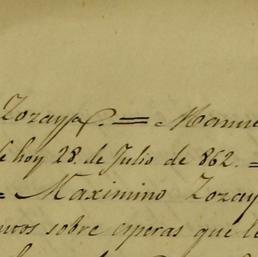 Zozaya. = Manu
de hoy 28. de Julio de 862. =
= Maximino Zozay
sobre esperas que